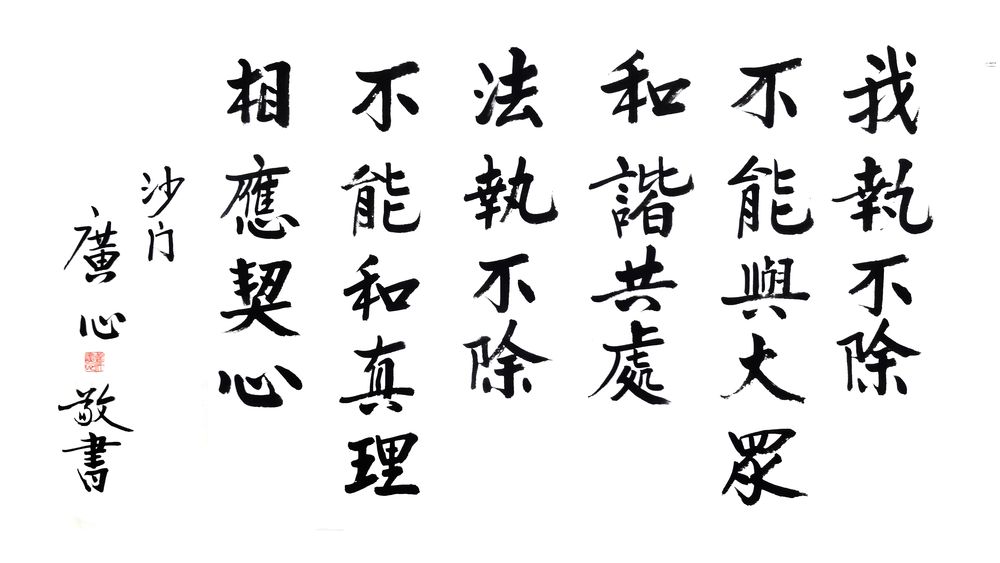 我執不除
不能與大眾
和諧共處
法執不除
不能和真理
相應契心
沙门
廣心
敬書